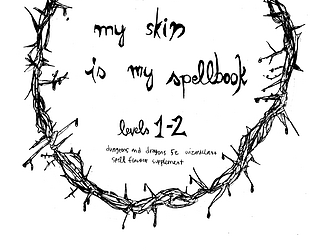 my skin
is my spellbook
levels 1-2
dungeons and dragons 5e wizardless
spell flavour supplement